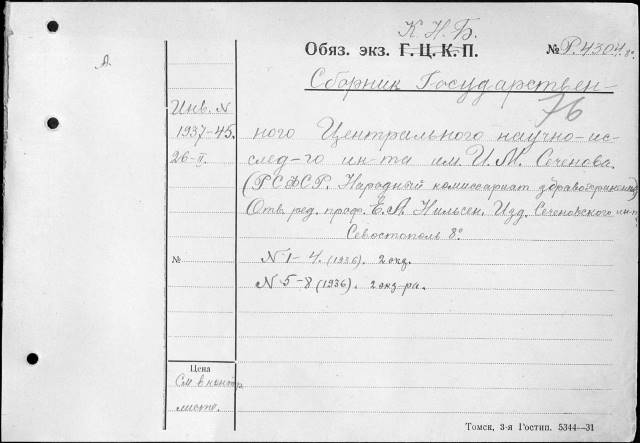 К. Н. Б.
Обяз. экз. Г. Ц. К. П. № Р. 4304. 8°
Сборник Государствен-
76
Инв. N
1937-45. ного Центрального научно-ис-
26-II. след-го ин-та им. И. М. Сеченова.
(РСФСР. Народный комиссариат здравоохранения)
Отв. ред. проф. Е. А. Нильсен. Изд. Сеченовского ин-та
Севостополь 8°
№ N 1-4. (1936). 2 экз.
N 5-8 (1936). 2 экз-ра.
Цена
См в контр.
листе.
Томск, 3-я Гостип. 5344—31